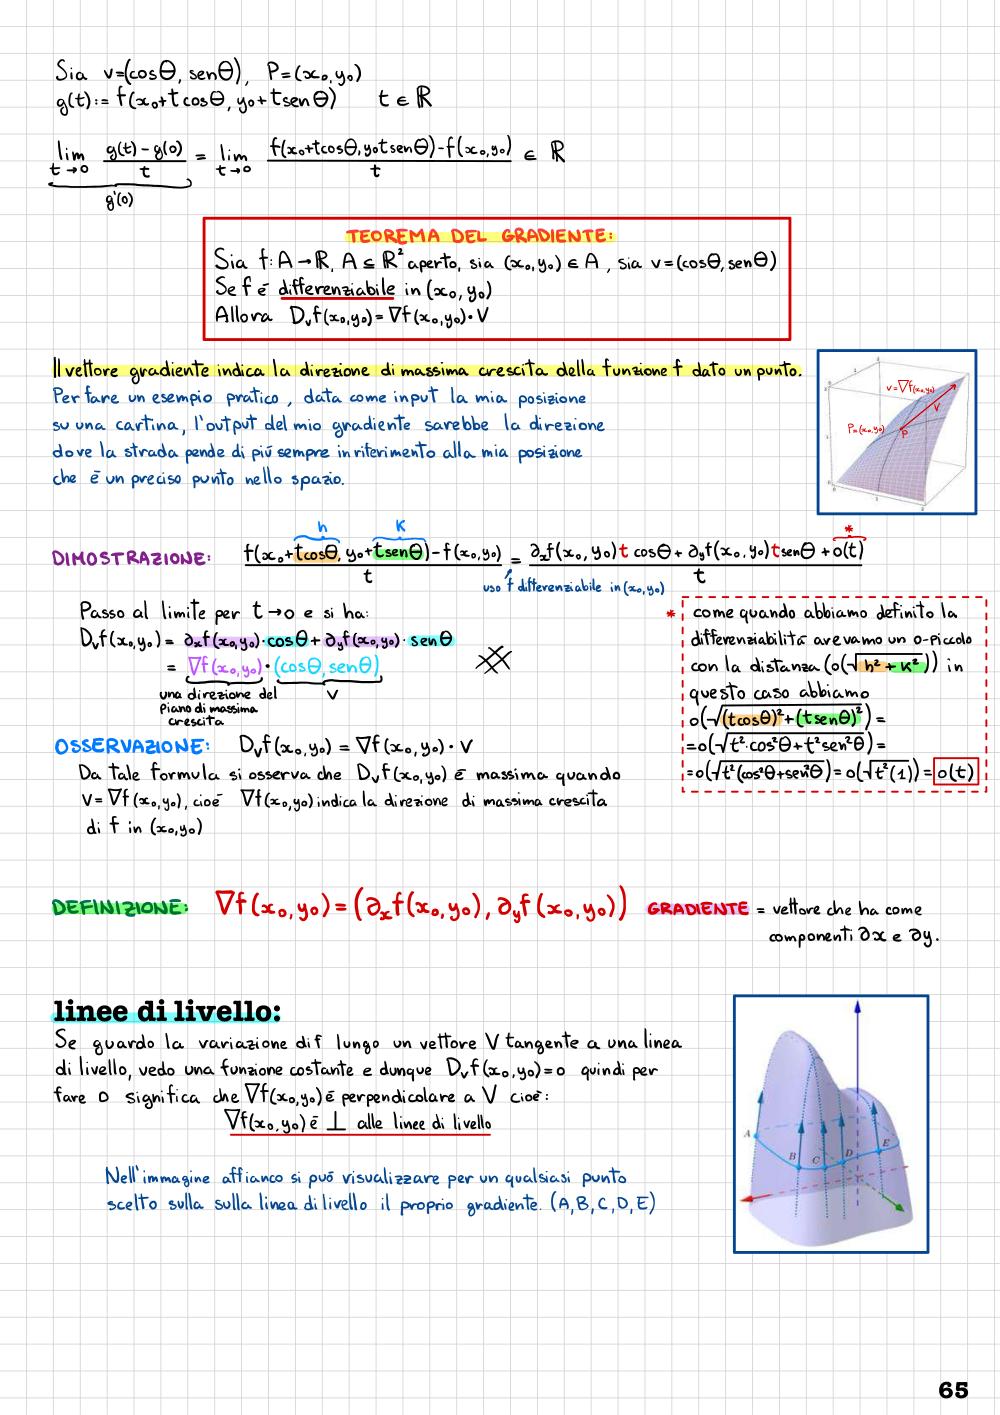 Sia v=(cosθ, senθ), P=(x₀,y₀)
g(t):= f(x₀+tcosθ, y₀+tsenθ) t ∈ ℝ
lim t→0 (g(t)-g(0))/t = lim t→0 (f(x₀+tcosθ,y₀tsenθ)-f(x₀,y₀))/t ∈ ℝ
g'(0)
TEOREMA DEL GRADIENTE:
Sia f: A→ℝ, A ⊆ ℝ² aperto, sia (x₀,y₀) ∈ A, sia v=(cosθ, senθ)
Se f é differenziabile in (x₀,y₀)
Allora Dᵥf(x₀,y₀)=∇f(x₀,y₀)·V
Il vettore gradiente indica la direzione di massima crescita della funzione f dato un punto.
Per fare un esempio pratico, data come input la mia posizione
su una cartina, l'output del mio gradiente sarebbe la direzione
dove la strada pende di piú sempre in riferimento alla mia posizione
che é un preciso punto nello spazio.
v=∇f(x₀,y₀)
V
P=(x₀,y₀)
P
h K *
DIMOSTRAZIONE: (f(x₀+tcosθ, y₀+tsenθ)-f(x₀,y₀))/t = (∂ₓf(x₀,y₀)t cosθ+∂ᵧf(x₀,y₀)tsenθ+o(t))/t
uso f differenziabile in (x₀,y₀)
Passo al limite per t→0 e si ha:
Dᵥf(x₀,y₀)= ∂ₓf(x₀,y₀)·cosθ+∂ᵧf(x₀,y₀)·senθ
= ∇f(x₀,y₀)·(cosθ,senθ)
una direzione del V
Piano di massima
crescita
* come quando abbiamo definito la
differenziabilitá avevamo un o-piccolo
con la distanza (o(√h²+K²)) in
questo caso abbiamo
o(√(tcosθ)²+(tsenθ)²)=
=o(√t²·cos²θ+t²sen²θ)=
=o(√t²(cos²θ+sen²θ)=o(√t²(1))=o(t)
OSSERVAZIONE: Dᵥf(x₀,y₀)=∇f(x₀,y₀)·V
Da tale formula si osserva che Dᵥf(x₀,y₀) é massima quando
V=∇f(x₀,y₀), cioé ∇f(x₀,y₀) indica la direzione di massima crescita
di f in (x₀,y₀)
DEFINIZIONE: ∇f(x₀,y₀)=(∂ₓf(x₀,y₀),∂ᵧf(x₀,y₀)) GRADIENTE = vettore che ha come
componenti ∂x e ∂y.
linee di livello:
Se guardo la variazione di f lungo un vettore V tangente a una linea
di livello, vedo una funzione costante e dunque Dᵥf(x₀,y₀)=0 quindi per
fare 0 significa che ∇f(x₀,y₀) é perpendicolare a V cioé:
∇f(x₀,y₀) é ⊥ alle linee di livello
Nell'immagine affianco si puó visualizzare per un qualsiasi punto
scelto sulla sulla linea di livello il proprio gradiente. (A,B,C,D,E)
A
B
C
D
E
65